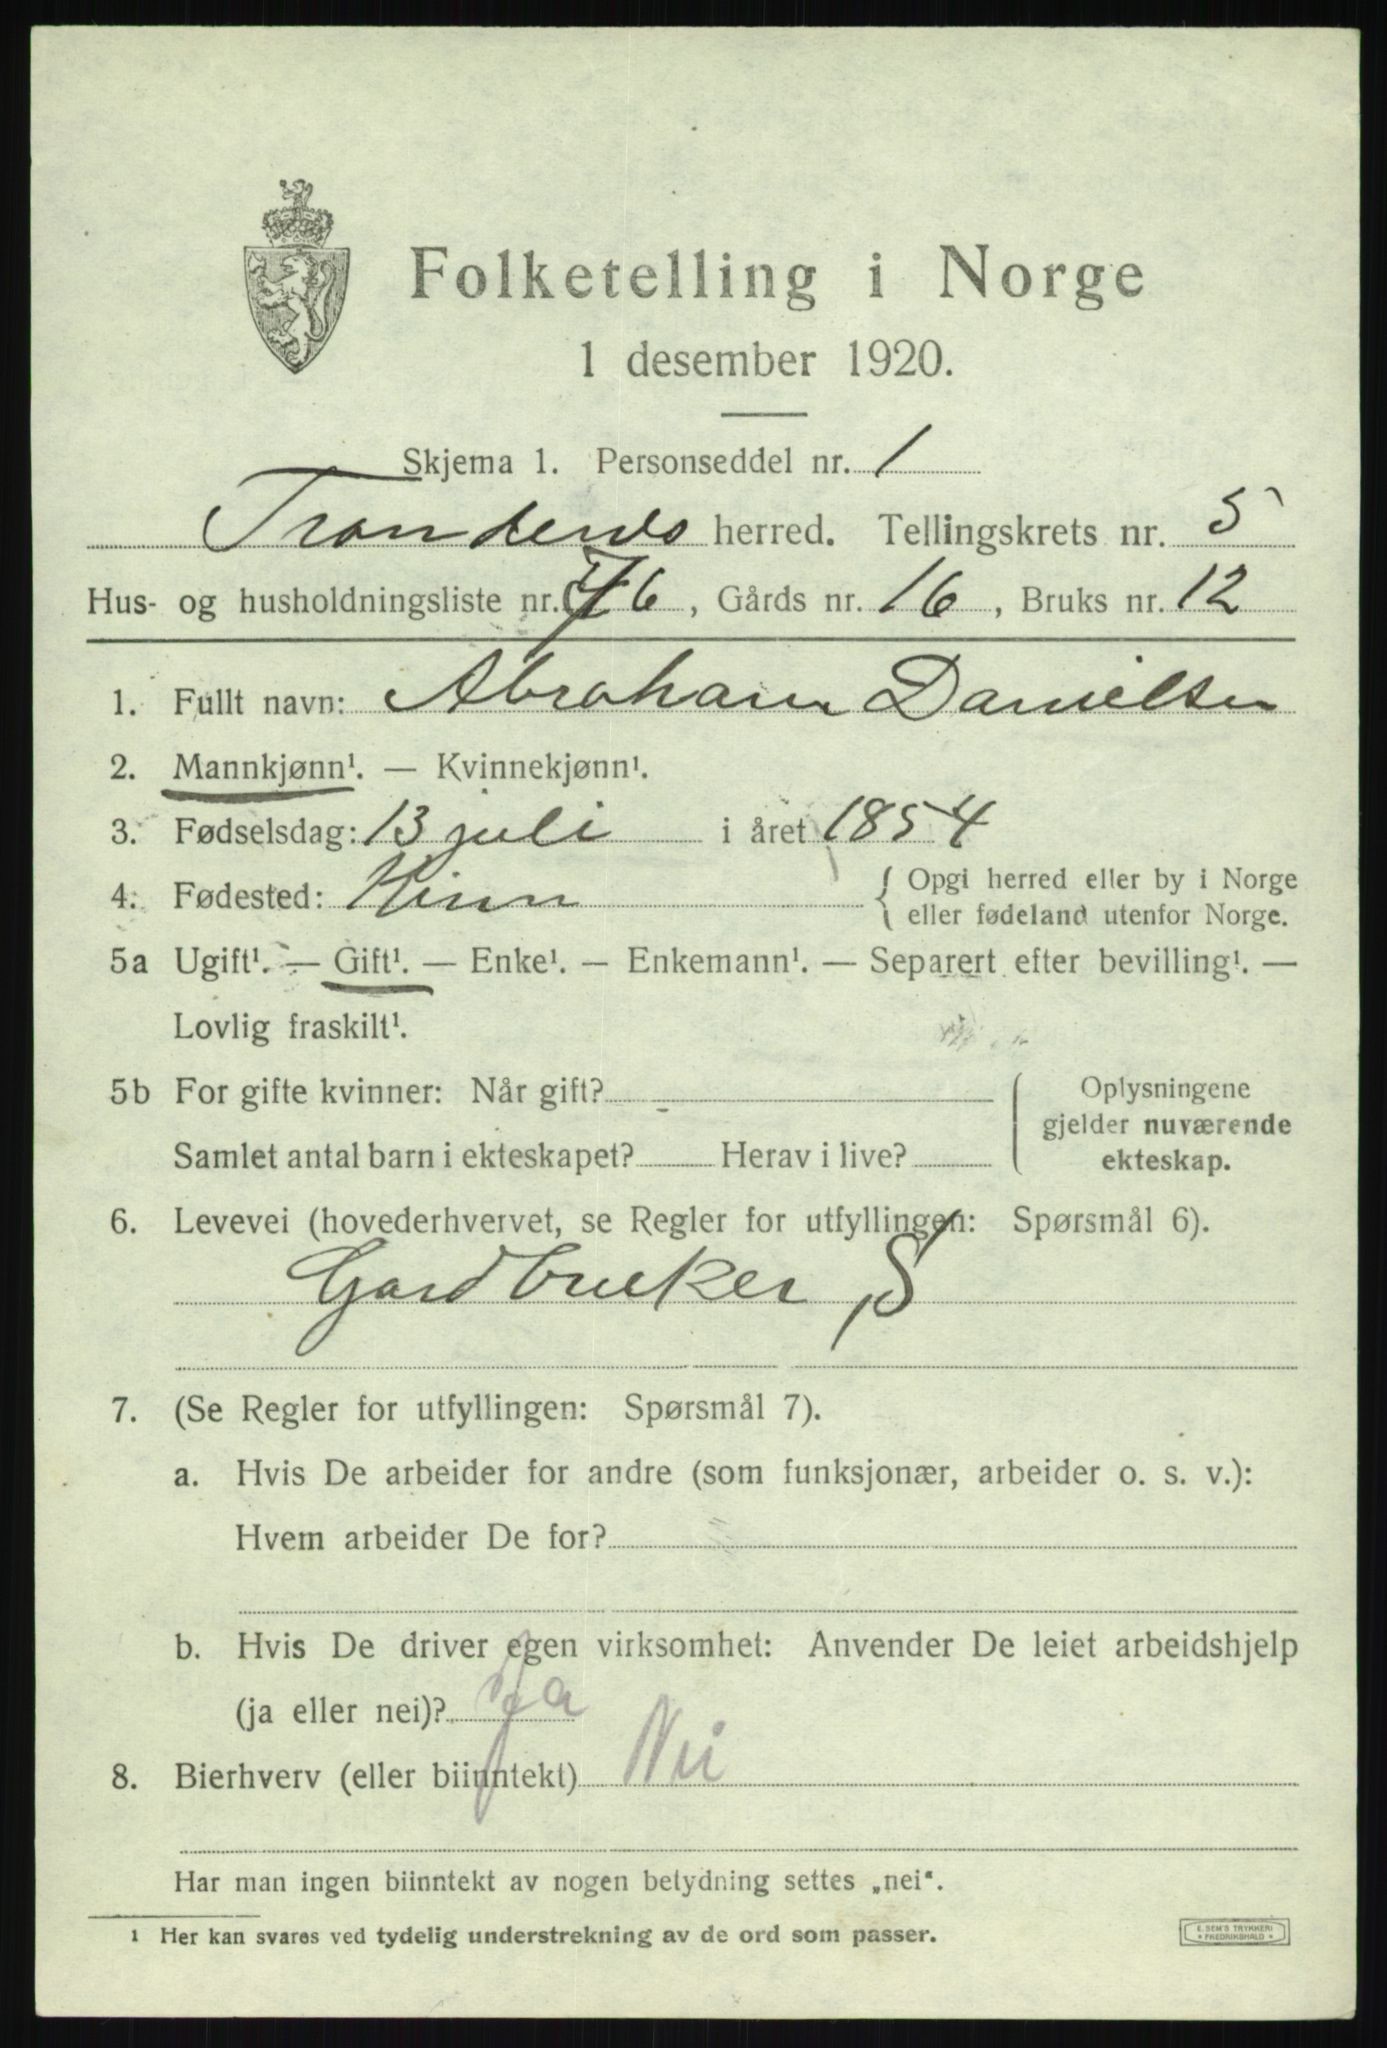 Folketelling i Norge
1 desember 1920.
Skjema 1. Personseddel nr. 1
Trondenes herred. Tellingskrets nr. 5
Hus- og husholdningsliste nr. 76, Gårds nr. 16, Bruks nr. 12
1. Fullt navn: Abraham Danielsen
2. Mannkjønn¹. — Kvinnekjønn¹.
3. Fødselsdag: 13 juli i året 1854
4. Fødested: Hinn { Opgi herred eller by i Norge
eller fødeland utenfor Norge.
5a Ugift¹. — Gift¹. — Enke¹. — Enkemann¹. — Separert efter bevilling¹. —
Lovlig fraskilt¹.
5b For gifte kvinner: Når gift? Oplysningene
gjelder nuværende
Samlet antal barn i ekteskapet? Herav i live? ekteskap.
6. Levevei (hovederhvervet, se Regler for utfyllingen: Spørsmål 6).
Gardbruker, S
7. (Se Regler for utfyllingen: Spørsmål 7).
a. Hvis De arbeider for andre (som funksjonær, arbeider o. s. v.):
Hvem arbeider De for?
b. Hvis De driver egen virksomhet: Anvender De leiet arbeidshjelp
(ja eller nei)? Ja
8. Bierhverv (eller biinntekt) Nei
Har man ingen biinntekt av nogen betydning settes „nei“.
¹ Her kan svares ved tydelig understrekning av de ord som passer.
E. SEM'S TRYKKERI
FREDRIKSHALD